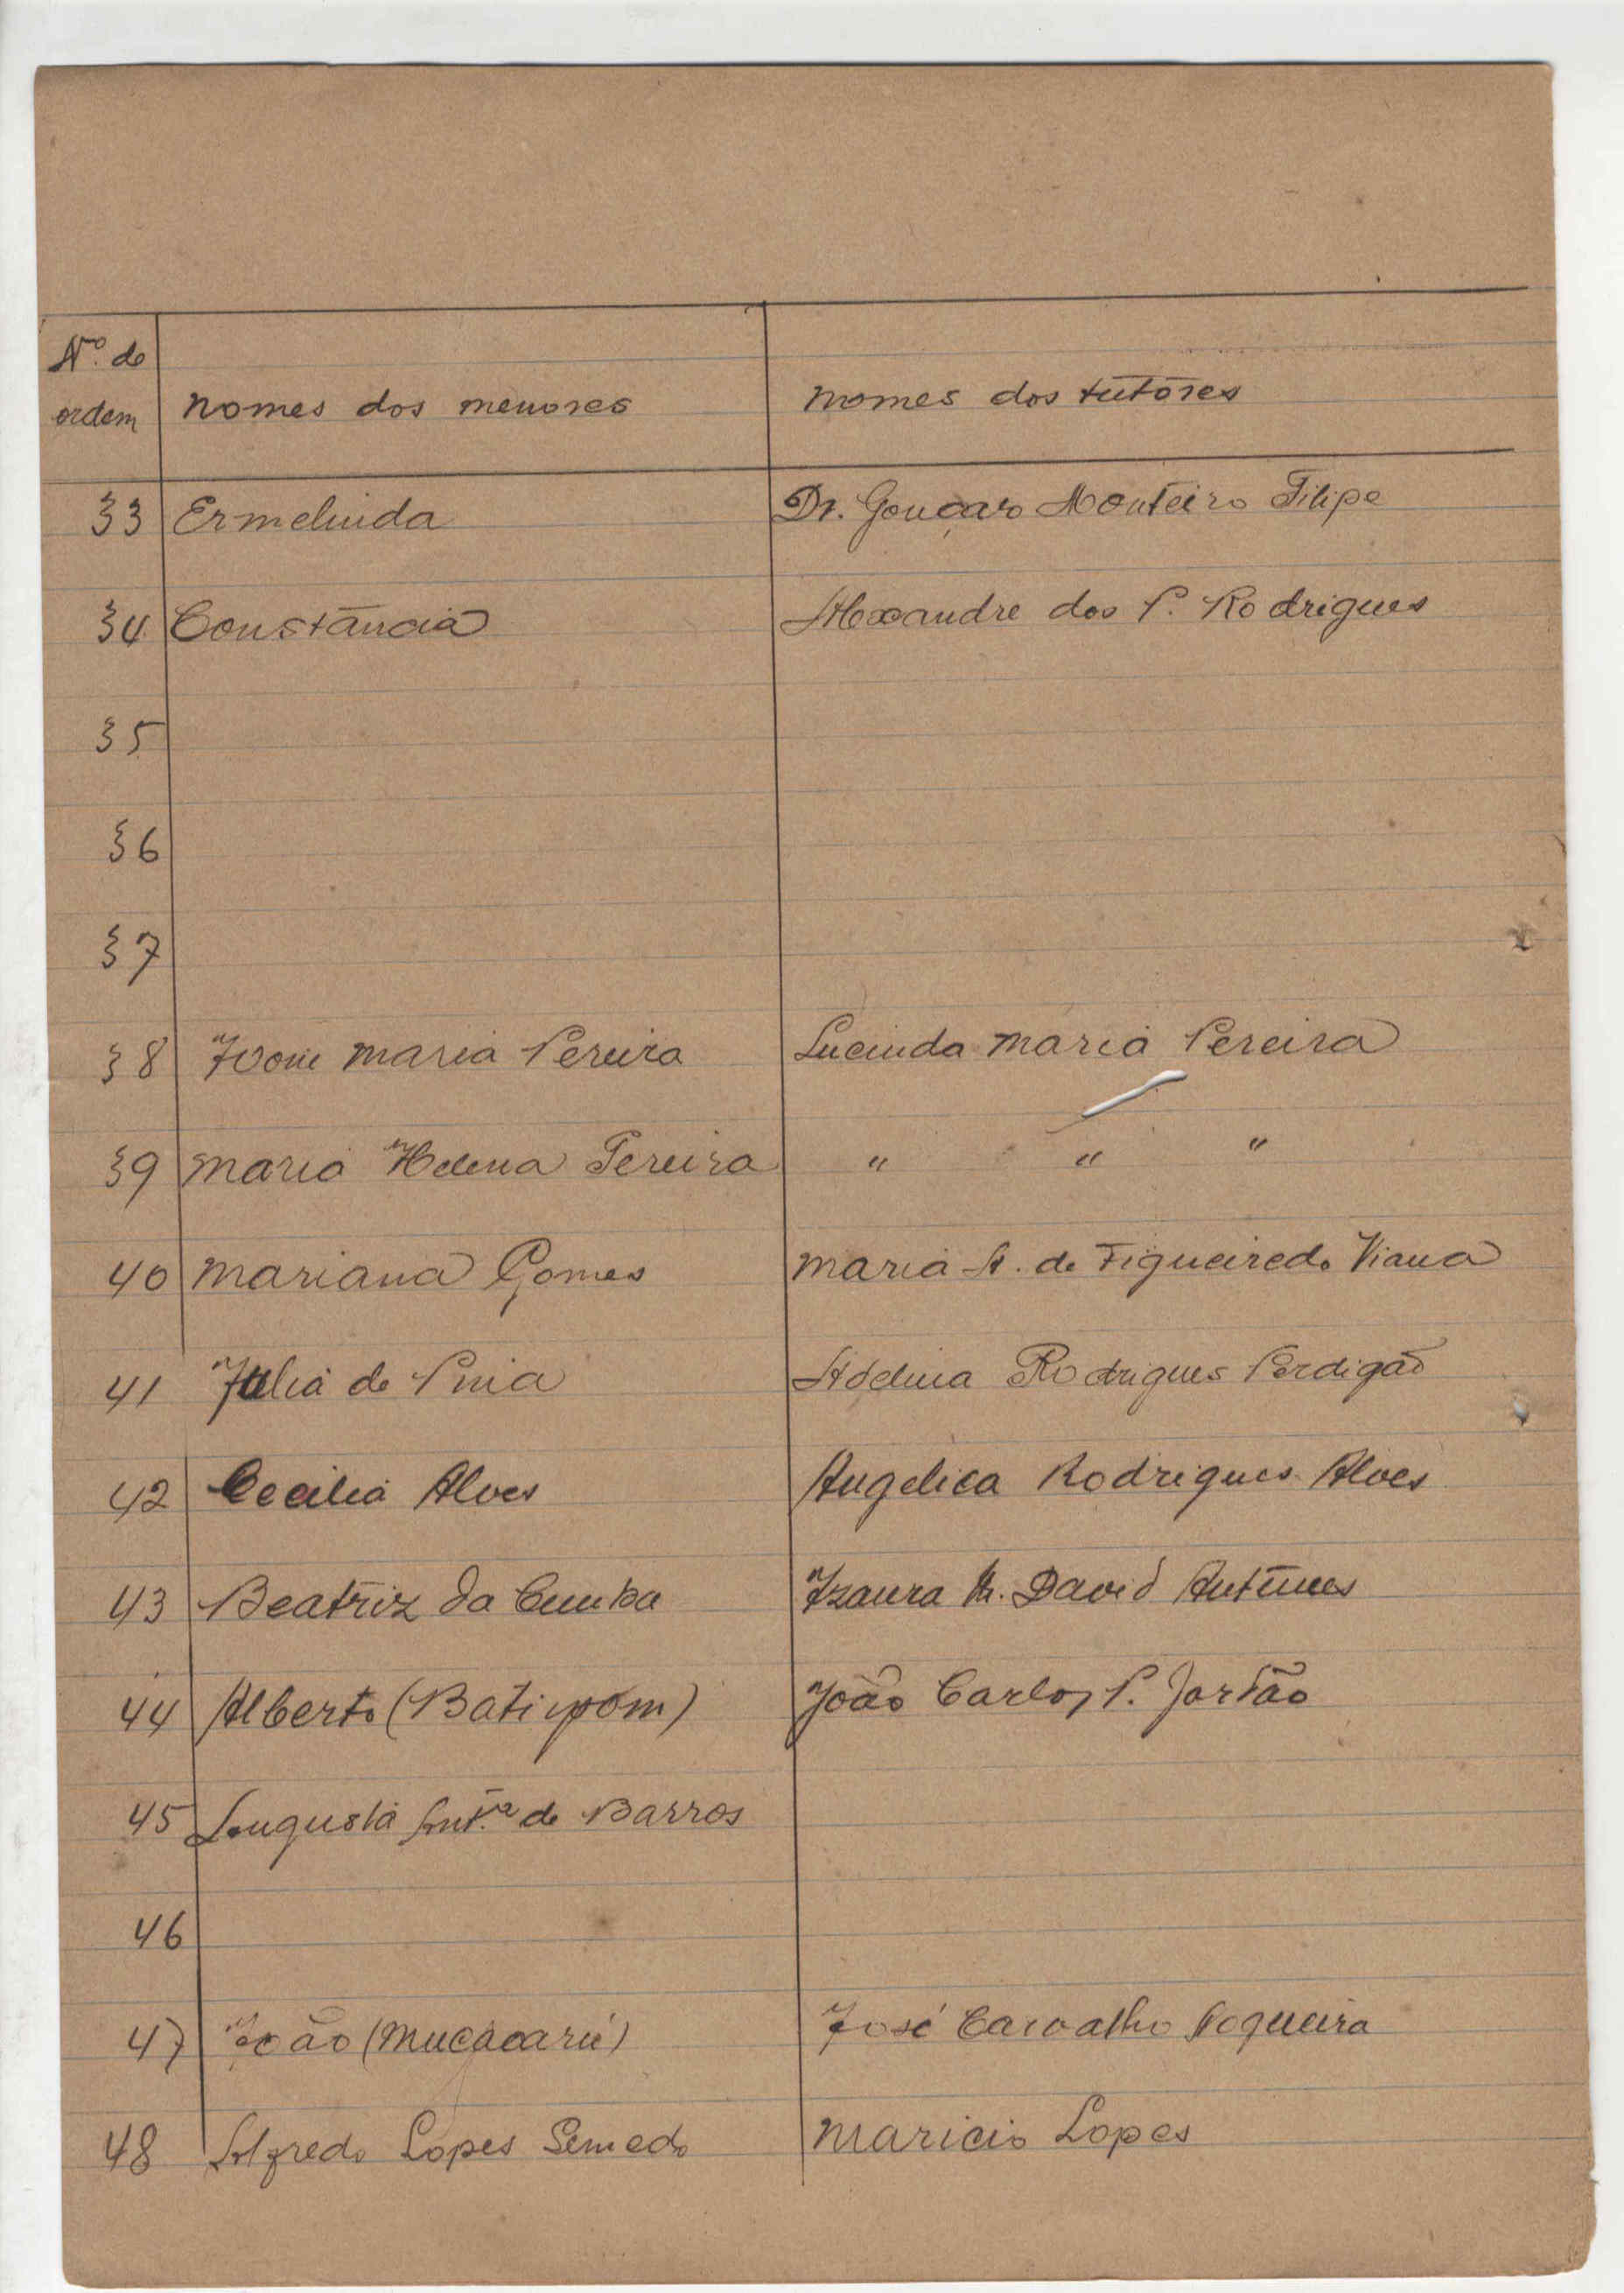 Nº de
ordem nomes dos menores nomes dos tutôres
33 Ermelinda Dr. Gonçaro Monteiro Filipe
34 Constância Alexandre dos P. Rodrigues
35
36
37
38 Ivone Maria Pereira Lucinda Maria Pereira
39 Maria Helena Pereira " " "
40 Mariana Gomes Maria A. de Figueiredo Viana
41 Julia de Pina Adelina Rodrigues Perdigão
42 Cecilia Alves Angelica Rodrigues Alves
43 Beatriz da Cunha Izaura M. David Antunes
44 Alberto (Batipom) João Carlos P. Jordão
45 Augusta Antª de Barros
46
47 João (Mucacaru) José Carvalho Nogueira
48 Alfredo Lopes Semedo Maricio Lopes